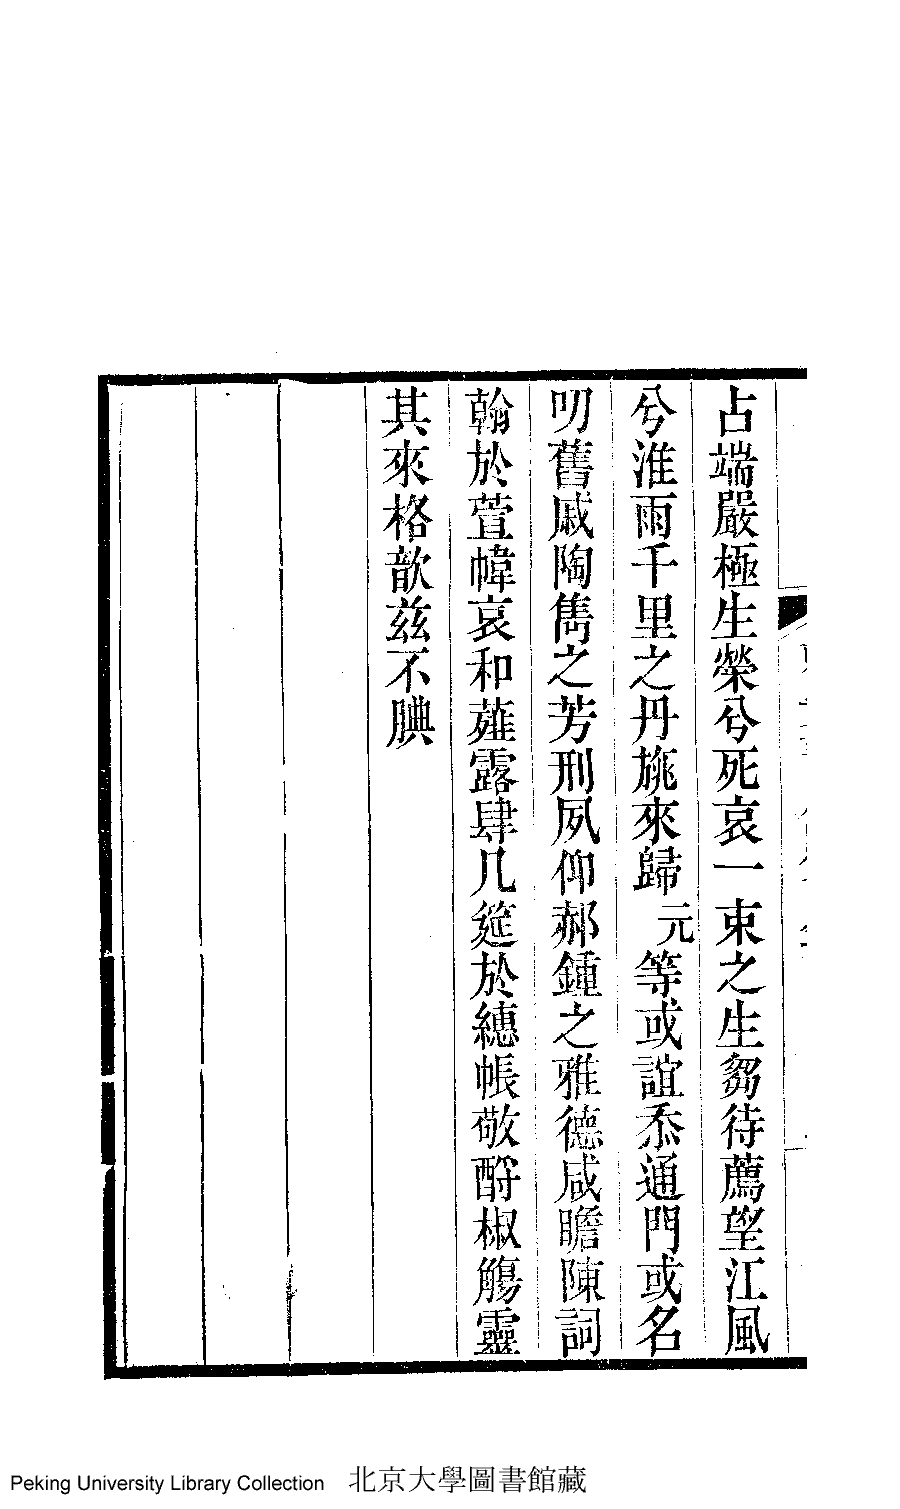 占端嚴極生榮兮死哀一束之生芻待薦望江風
兮淮雨千里之丹旐來歸元等或誼忝通門或名
叨舊戚陶雋之芳刑夙仰郝鍾之雅德咸瞻陳詞
翰於萱幃哀和薤露肆几筵於繐帳敬酹椒觴靈
其來格歆茲不腆
Peking University Library Collection 北京大學圖書館藏